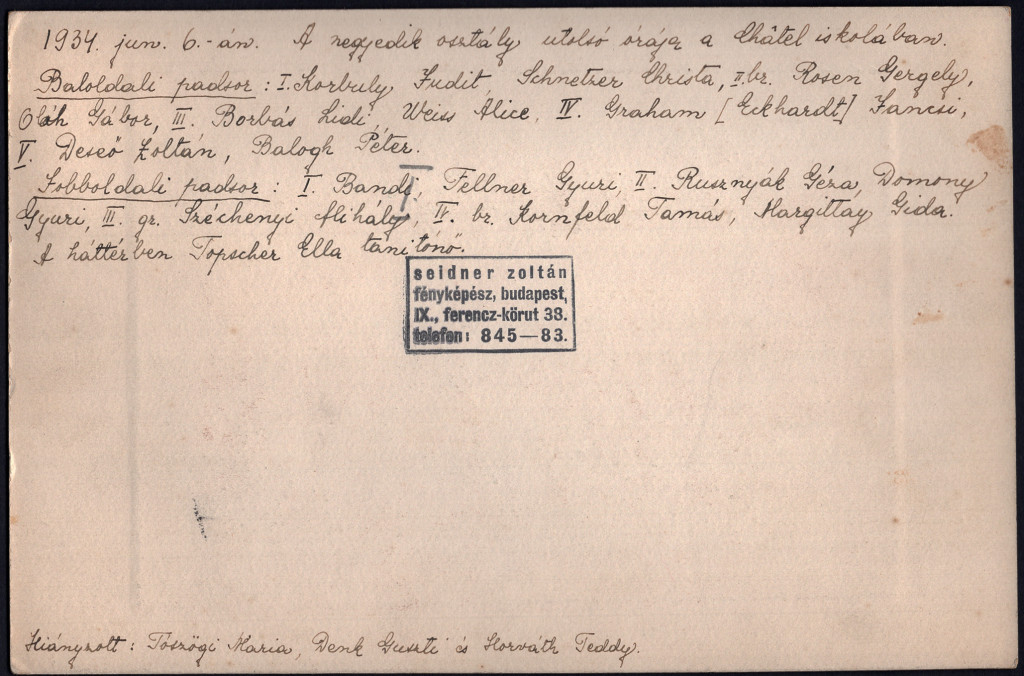 1934. jun. 6.-án. A negyedik osztály utolsó órája a Châtel iskolában.
Baloldali padsor : I. Korbuly Judit, Schnetzer Christa, II. br. Rosen Gergely,
Oláh Gábor, III. Borbás Lidi, Weiss Alice, IV. Graham [Eckhardt] Jancsi,
V. Deseő Zoltán, Balogh Péter.
Jobboldali padsor : I. Bandi, Fellner Gyuri, II. Rusznyák Géza, Domony
Gyuri, III. gr. Széchenyi Mihály, IV. br. Kornfeld Tamás, Margittay Gida.
A háttérben Topscher Ella tanitónő.
seidner zoltán
fényképész, budapest,
IX., ferencz-körut 38.
telefon: 845—83.
Hiányzott : Tószögi Maria, Denk Guszti és Horváth Teddy.